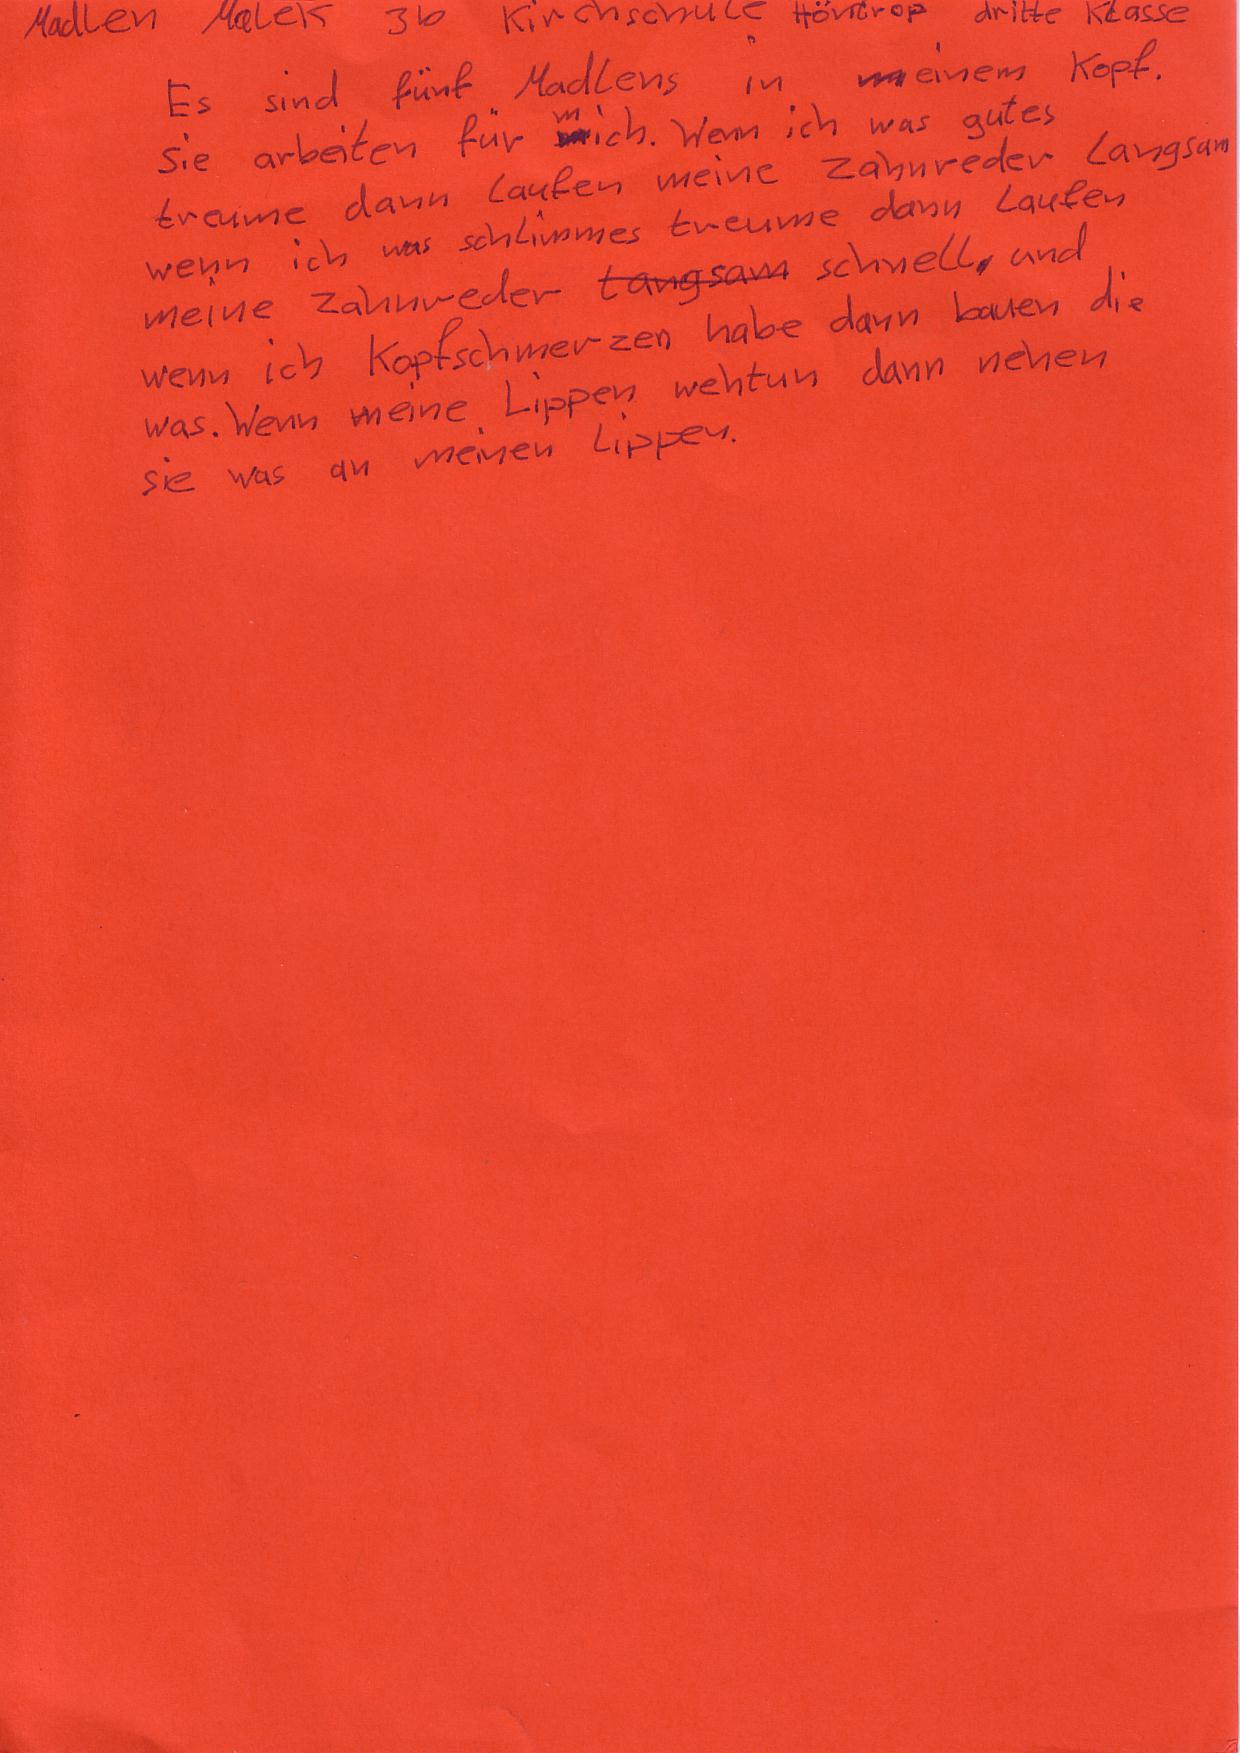 Madlen Malek 3b Kirchschule Höntrop dritte Klasse
Es sind fünf Madlens in meinem Kopf.
Sie arbeiten für mich. Wenn ich was gutes
treume dann laufen meine zahnreder langsam
wenn ich was schlimmes treume dann laufen
meine zahnreder langsam schnell, und
wenn ich Kopfschmerzen habe dann bauen die
was. Wenn meine Lippen wehtun dann nehen
sie was an meinen Lippen.